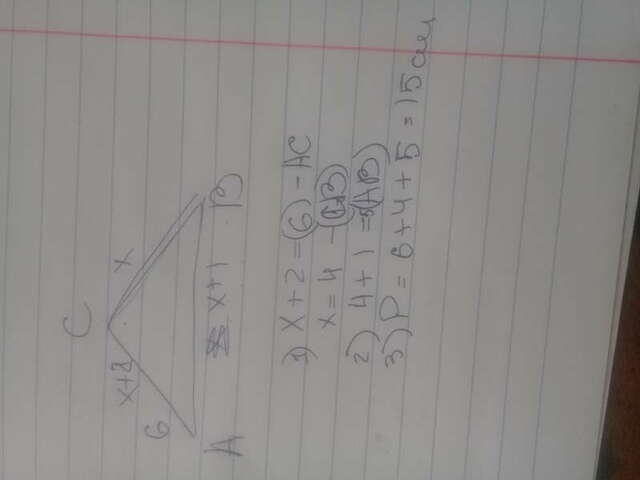 C
x+2
x
6
x+1
A
B
1) x+2=6 - AC
x=4 - CB
2) 4+1=5 AB
3) P=6+4+5=15см